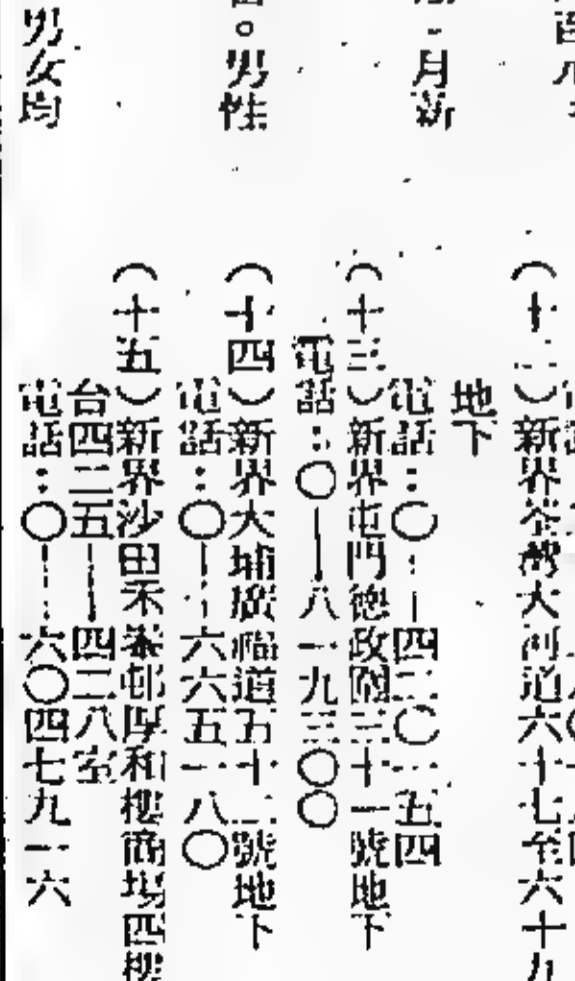 月新
。男性
男女均
（十二）新界荃灣大河道六十七至六十九
地下
電話：〇—四二〇一五四
（十三）新界屯門德政圍三十一號地下
電話：〇—八一九三〇〇
（十四）新界大埔廣福道五十二號地下
電話：〇—六六五一八〇
（十五）新界沙田禾輋邨厚和樓商場四樓
台四二五——四二八室
電話：〇—六〇四七九一六